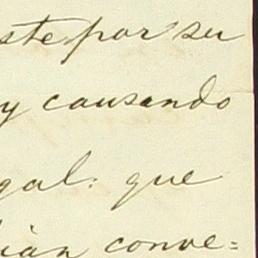 ste por su
y causando
gal: que
ian conve=